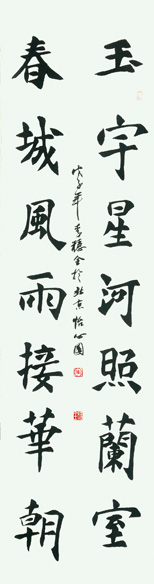 玉宇星河照蘭室
春城風雨接華朝
戊子年李穩全於北京怡心園